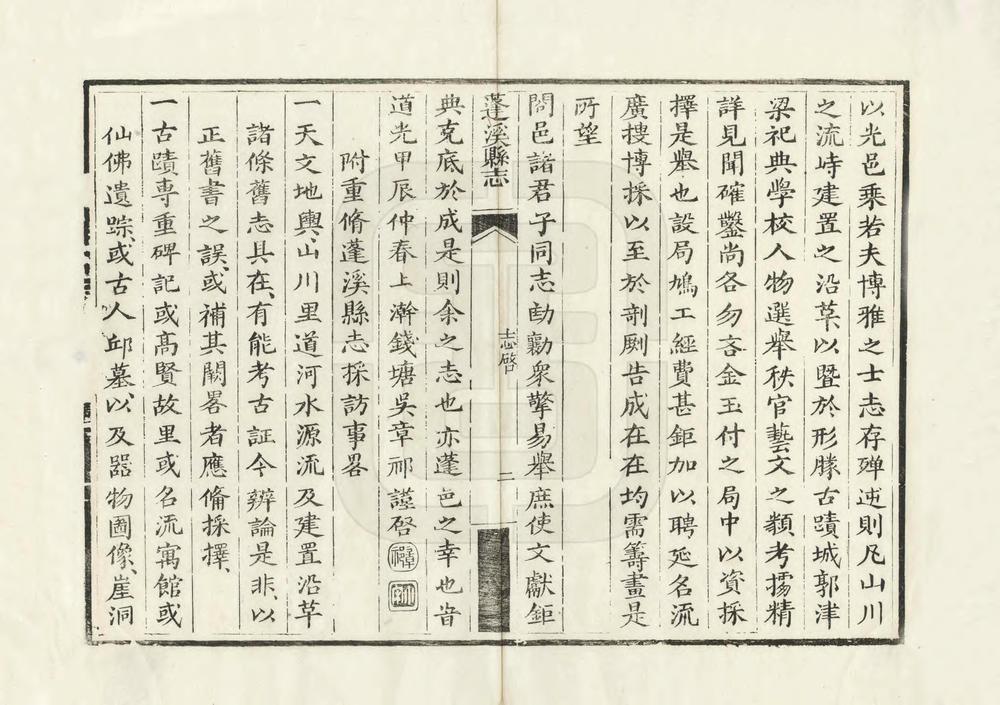 以光邑乘若夫博雅之士志存殫述則凡山川
之流峙建置之沿革以暨於形勝古蹟城郭津
梁祀典學校人物選舉秩官藝文之類考搨精
詳見聞確鑿尚各勿吝金玉付之局中以資採
擇是舉也設局鳩工經費甚鉅加以聘延名流
廣搜博採以至於剞劂告成在在均需籌畫是
所望
閤邑諸君子同志勷衆擎易舉庶使文獻鉅
蓬溪縣志
志啓
二
典克底於成是則余之志也亦蓬邑之幸也旹
道光甲辰仲春上澣錢塘吳章祁謹啓
附重脩蓬溪縣志採訪事畧
一天文地輿、山川里道河水源流及建置沿革
諸條舊志具在、有能考古証今辨論是非、以
正舊書之誤、或補其闕畧者應備採擇、
一古蹟專重碑記或高賢故里或名流寓館或
仙佛遺踪、或古人邱墓、以及器物圖像、崖洞